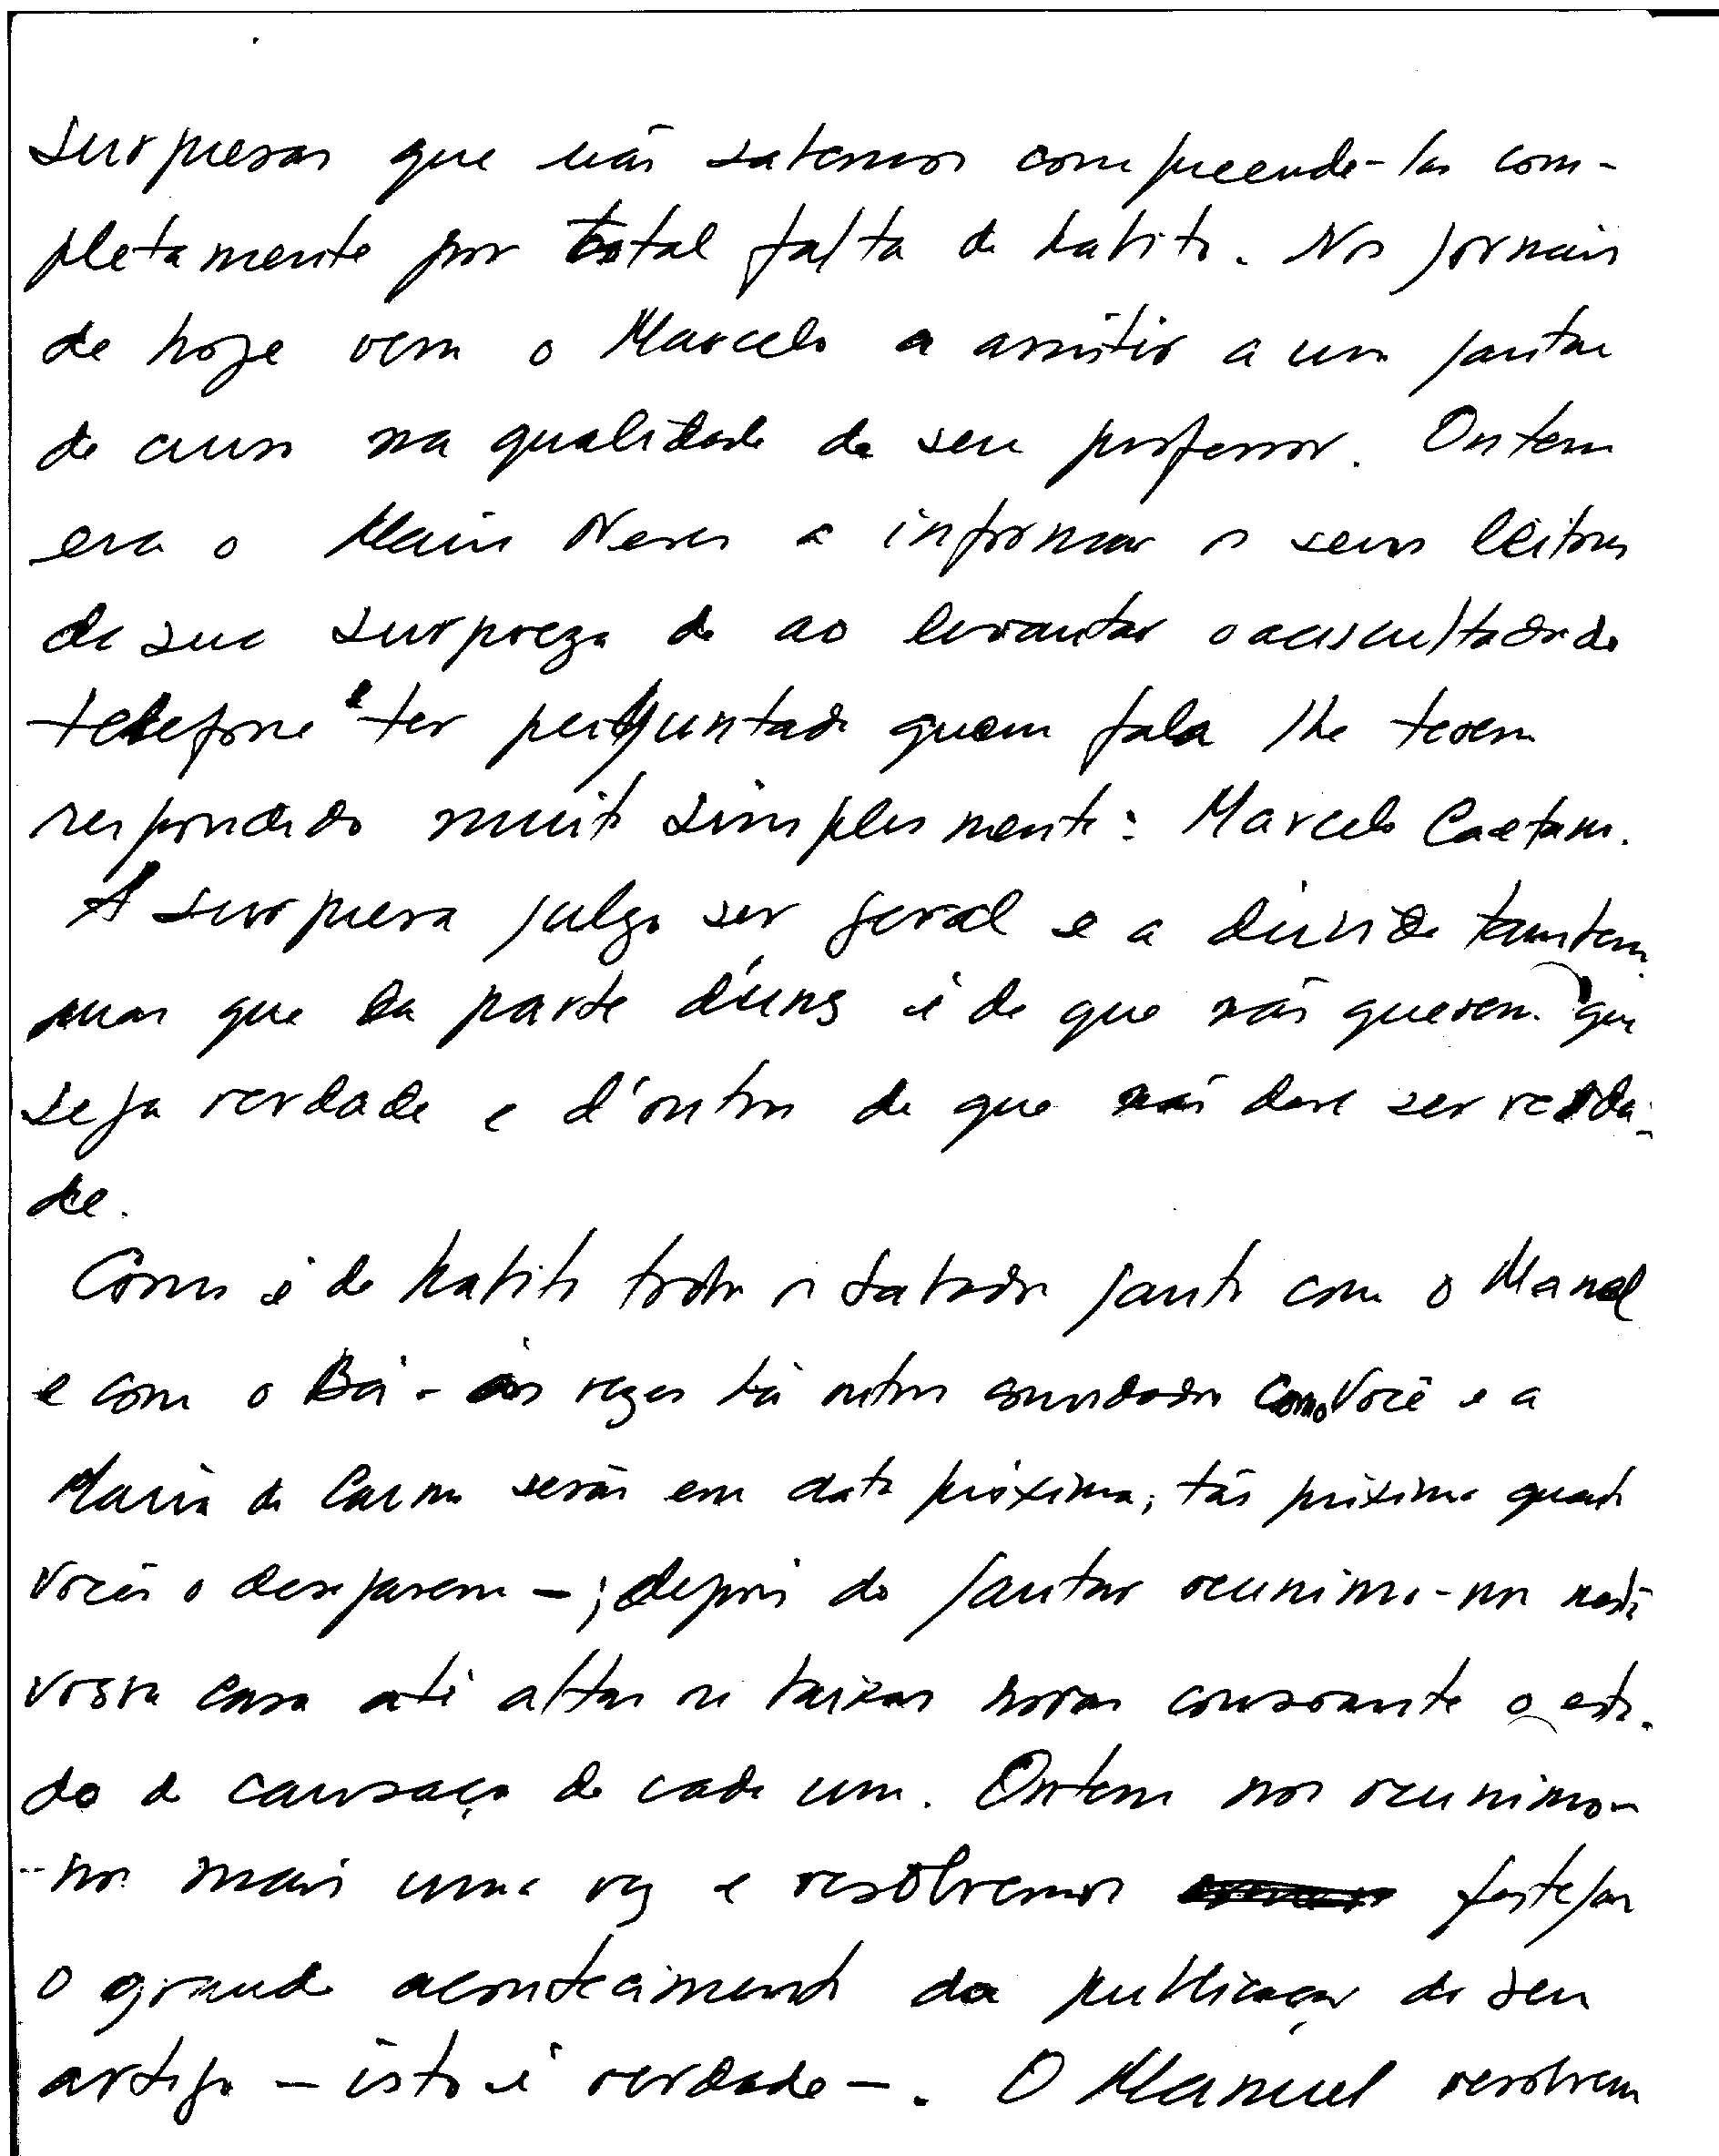 surpresas que não sabemos compreende-las com-
pletamente por total falta de habito. Nos jornais
de hoje vem o Marcelo a assistir a um jantar
de curso na qualidade de seu professor. Ontem
era o Mario Neves a informar os seus leitores
da sua surpreza de ao levantar o auscultador do
telefone e ter perguntado quem fala lhe terem
respondido muito simplesmente: Marcelo Caetano.
A surpresa julgo ser geral e a duvida tambem
mas que da parte d'uns é de que não querem que
seja verdade e d'outros de que não deve ser verda-
de.
Como é de habito todos os sabados janto com o Manel
e com o Bá - as vezes há outros convidados como Você e a
Maria do Carmo serão em data próxima, tão próxima quanto
Vocês o desejarem -; depois do jantar reunimo-nos nesta
vossa casa até altas ou baixas horas consoante o esta-
do de cansaço de cada um. Ontem nos reunimo-
-nos mais uma vez e resolvemos festejar
o grande acontecimento da publicação do seu
artigo - isto é verdade -. O Manuel resolveu